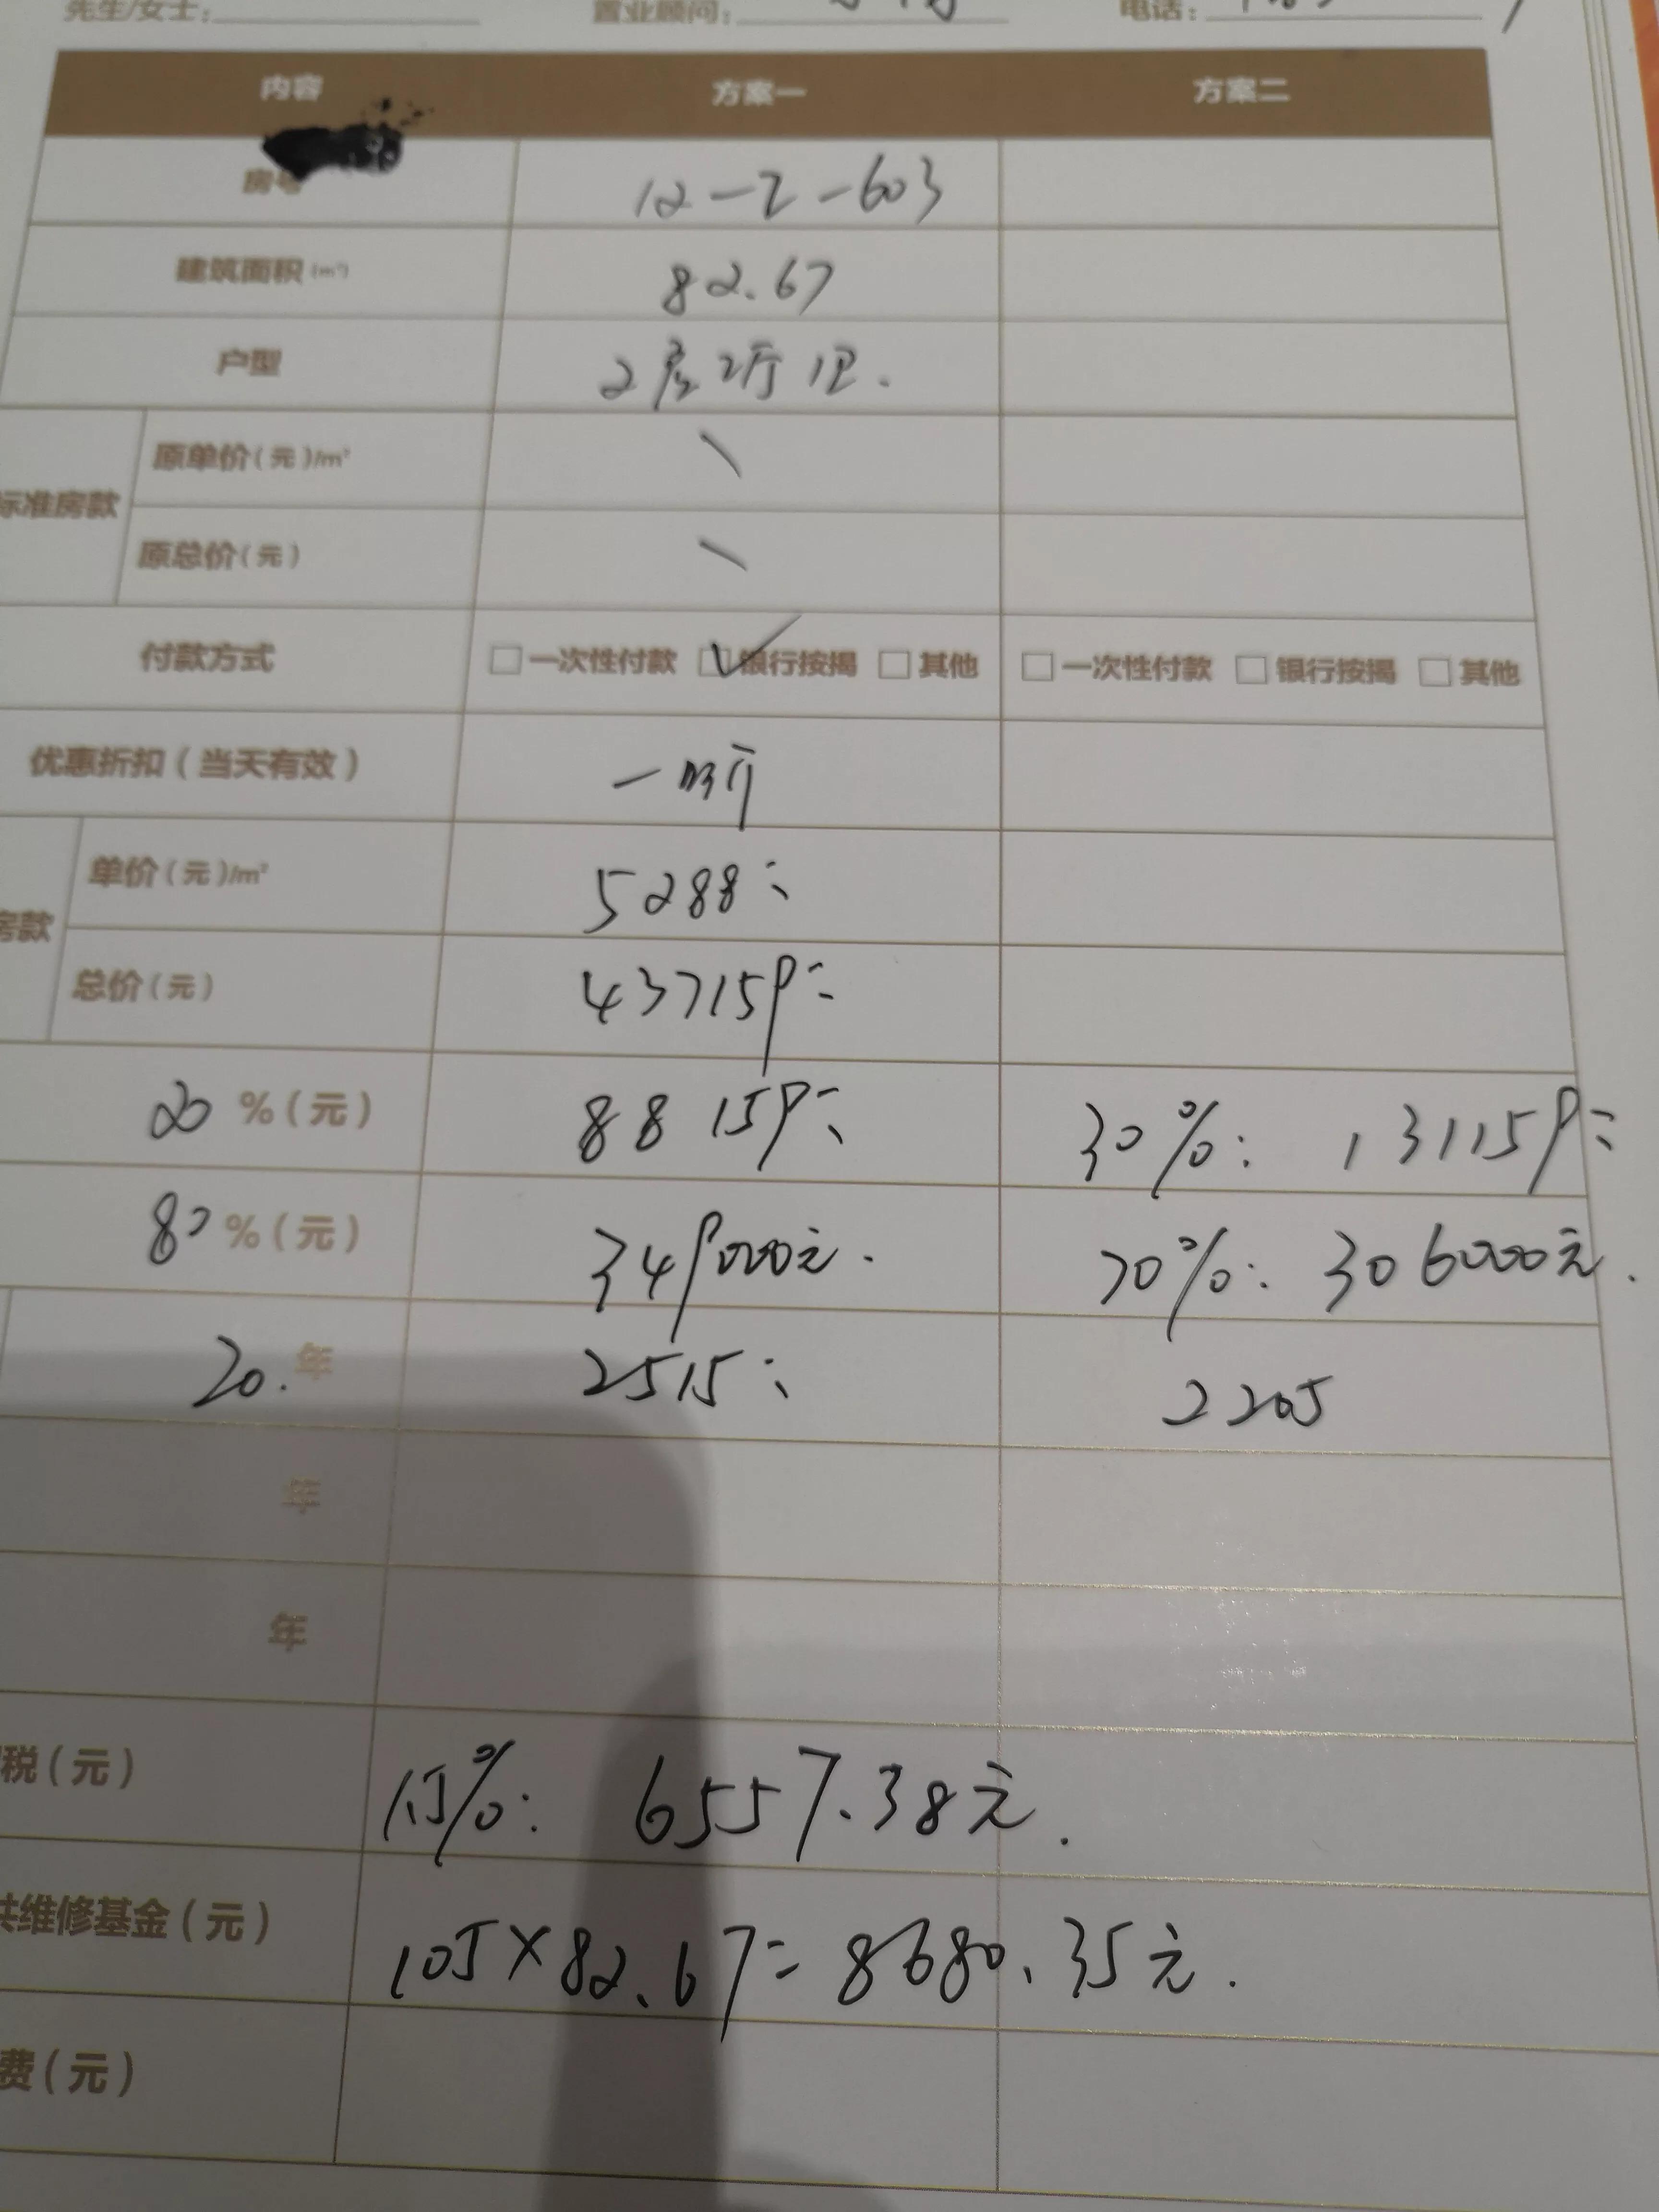 先生/女士： 置业顾问： 电话：
内容 方案一 方案二
房号 12-2-603
建筑面积(m²) 82.67
户型 2房2厅1卫.
标准房款
原单价(元)/m² \
原总价(元) \
付款方式 □一次性付款 ☑银行按揭 □其他 □一次性付款 □银行按揭 □其他
优惠折扣(当天有效) 一口价
房款
单价(元)/m² 5288元
总价(元) 437159元
20 %(元) 88159元 30%: 131159元
80 %(元) 349000元. 70%: 306000元.
20. 年 2515元 2205
年
年
税(元) 1.5%: 6557.38元.
共维修基金(元) 105×82.67=8680.35元.
费(元)